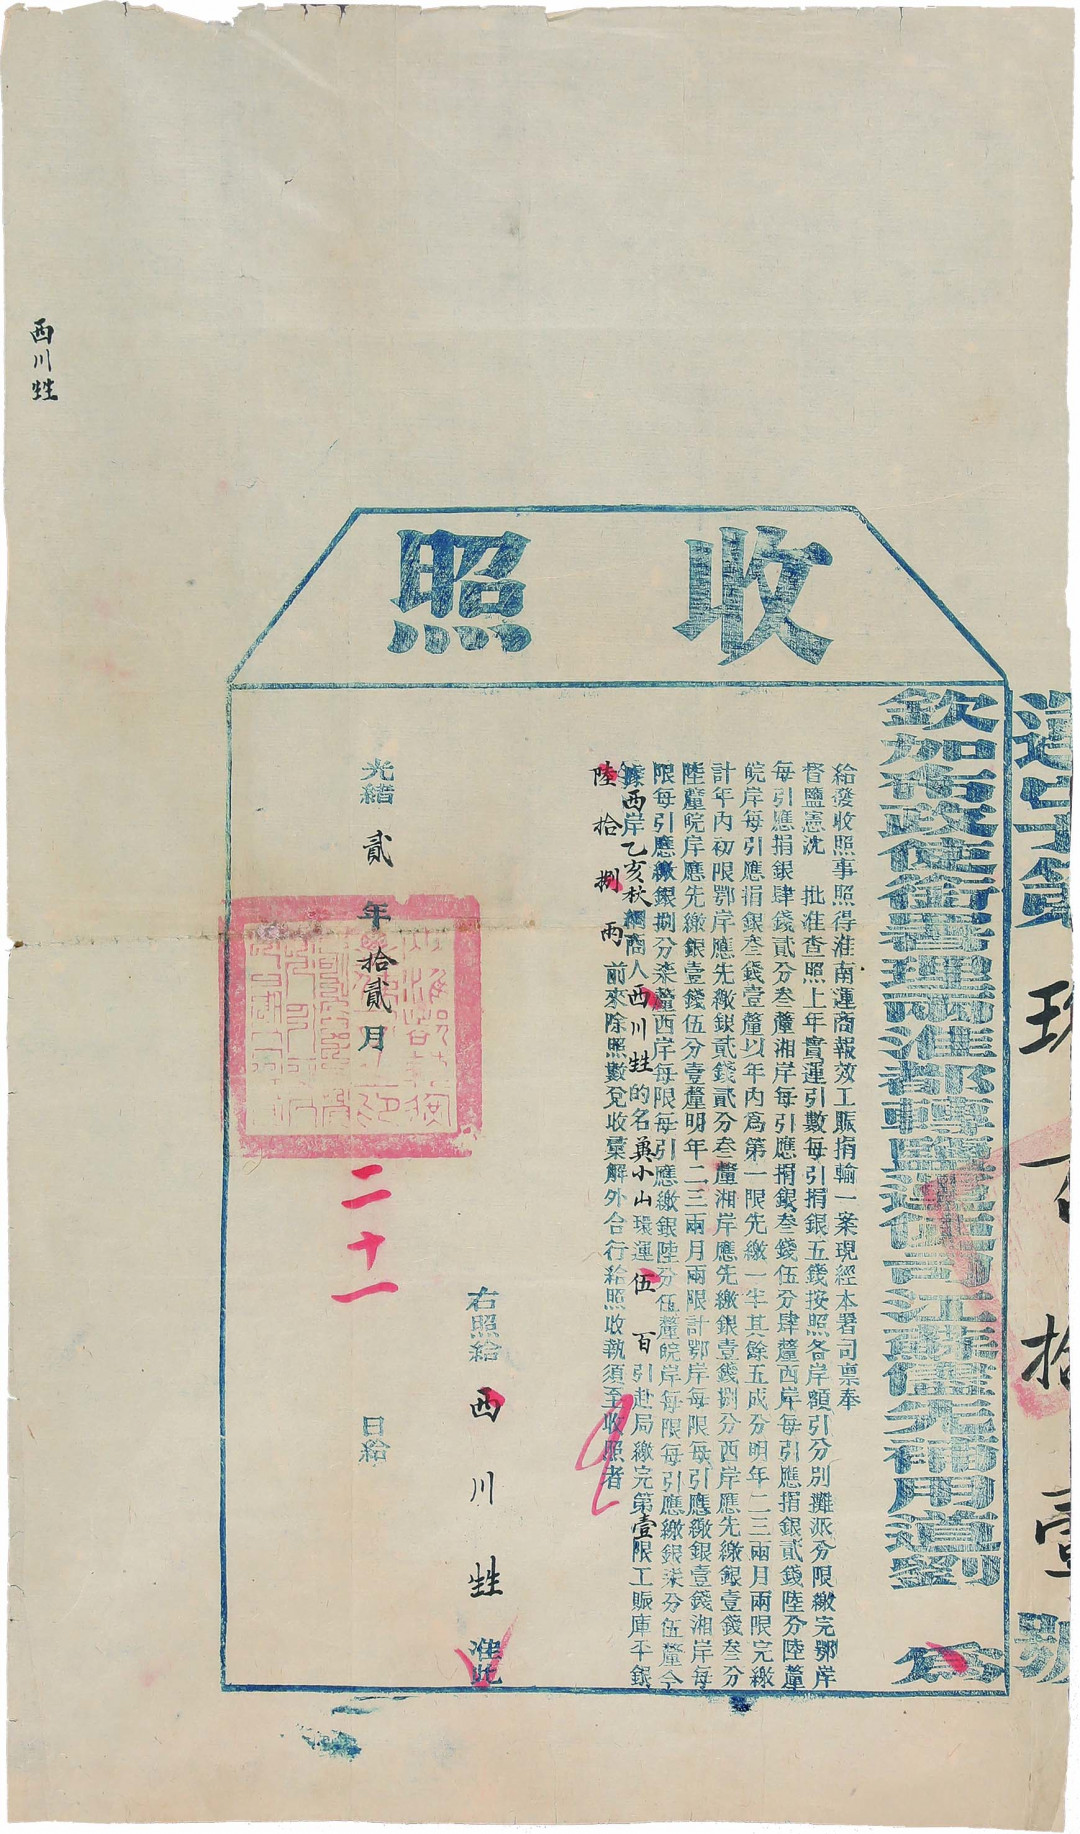 收照
欽加布政使銜署理兩淮都轉鹽運使司江蘇儘先補用道劉 為
給發收照事照得淮南運商報效工賑捐輸一案現經本署司稟奉
督鹽憲沈 批准查照上年實運引數每引捐銀五錢按照各岸額引分別攤派分限繳完鄂岸
每引應捐銀肆錢貳分叁釐湘岸每引應捐銀叁錢伍分肆釐西岸每引應捐銀貳錢陸分陸釐
皖岸每引應捐銀叁錢壹釐以年內為第一限先繳一半其餘五成分明年二三兩月兩限完繳
計年內初限鄂岸應先繳銀貳錢貳分叁釐湘岸應先繳銀壹錢捌分西岸應先繳銀壹錢叁分
陸釐皖岸應先繳銀壹錢伍分壹釐明年二三兩月兩限計鄂岸每限每引應繳銀壹錢湘岸每
限每引應繳銀捌分柒釐西岸每限每引應繳銀陸分伍釐皖岸每限每引應繳銀柒分伍釐今
據西岸乙亥秋綱商人西川甡的名黃小山環運伍百引赴局繳完第壹限工賑庫平銀
陸拾捌兩 前來除照數兌收彙解外合行給照收執須至收照者
右照給 西川甡 准此
光緒貳年拾貳月二十一日給
西川甡
拾壹號